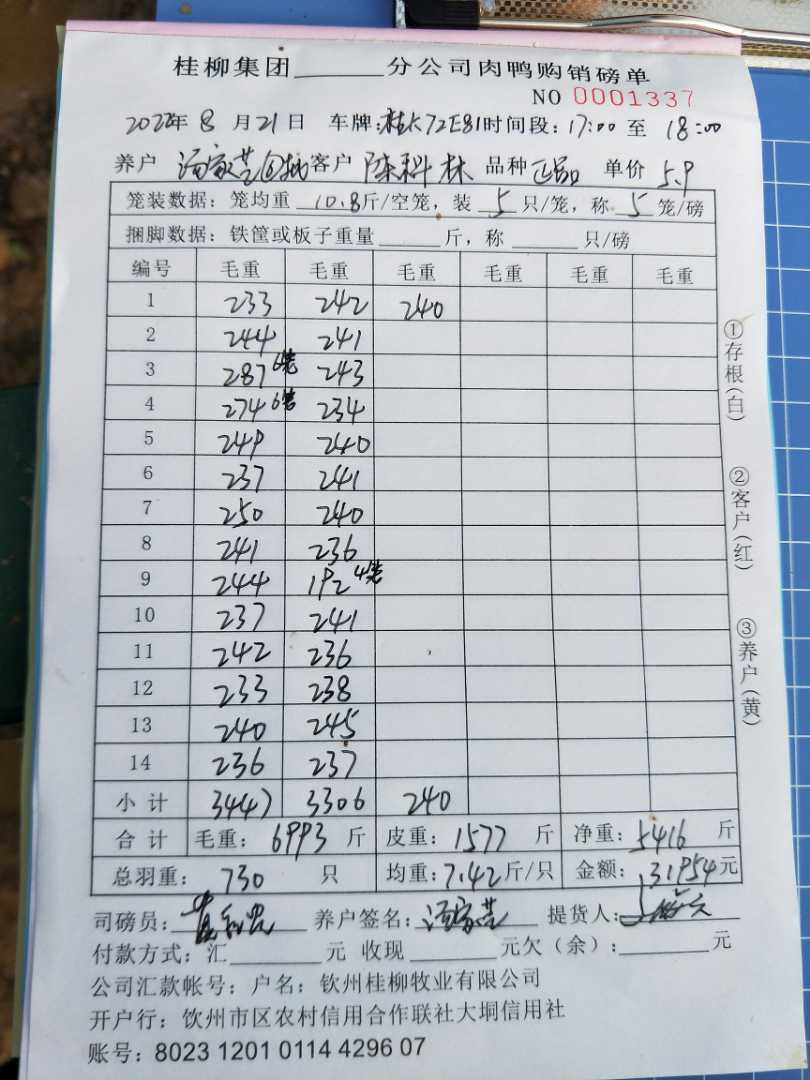 桂柳集团______分公司肉鸭购销磅单
NO 0001337
2022年 8 月 21 日 车牌:桂K72E81 时间段:17:00 至 18:00
养户 客户 陈科林 品种 正品 单价 5.9
笼装数据:笼均重 10.8斤/空笼,装 5 只/笼,称 5 笼/磅
捆脚数据:铁筐或板子重量______斤,称______只/磅
编号 毛重 毛重 毛重 毛重 毛重 毛重
1 233 242 240
2 244 241
3 287 6装 243
4 274 6装 234
5 249 240
6 237 241
7 250 240
8 241 236
9 244 192 4装
10 237 241
11 242 236
12 233 238
13 240 245
14 236 237
小计 3447 3306 240
合计 毛重: 6993 斤 皮重: 1577 斤 净重: 5416 斤
总羽重: 730 只 均重: 7.42 斤/只 金额: 31954 元
司磅员: 养户签名: 提货人:
付款方式:汇______元 收现______元欠(余):______元
公司汇款帐号:户名:钦州桂柳牧业有限公司
开户行:钦州市区农村信用合作联社大垌信用社
账号:8023 1201 0114 4296 07
①存根(白)
②客户(红)
③养户(黄)